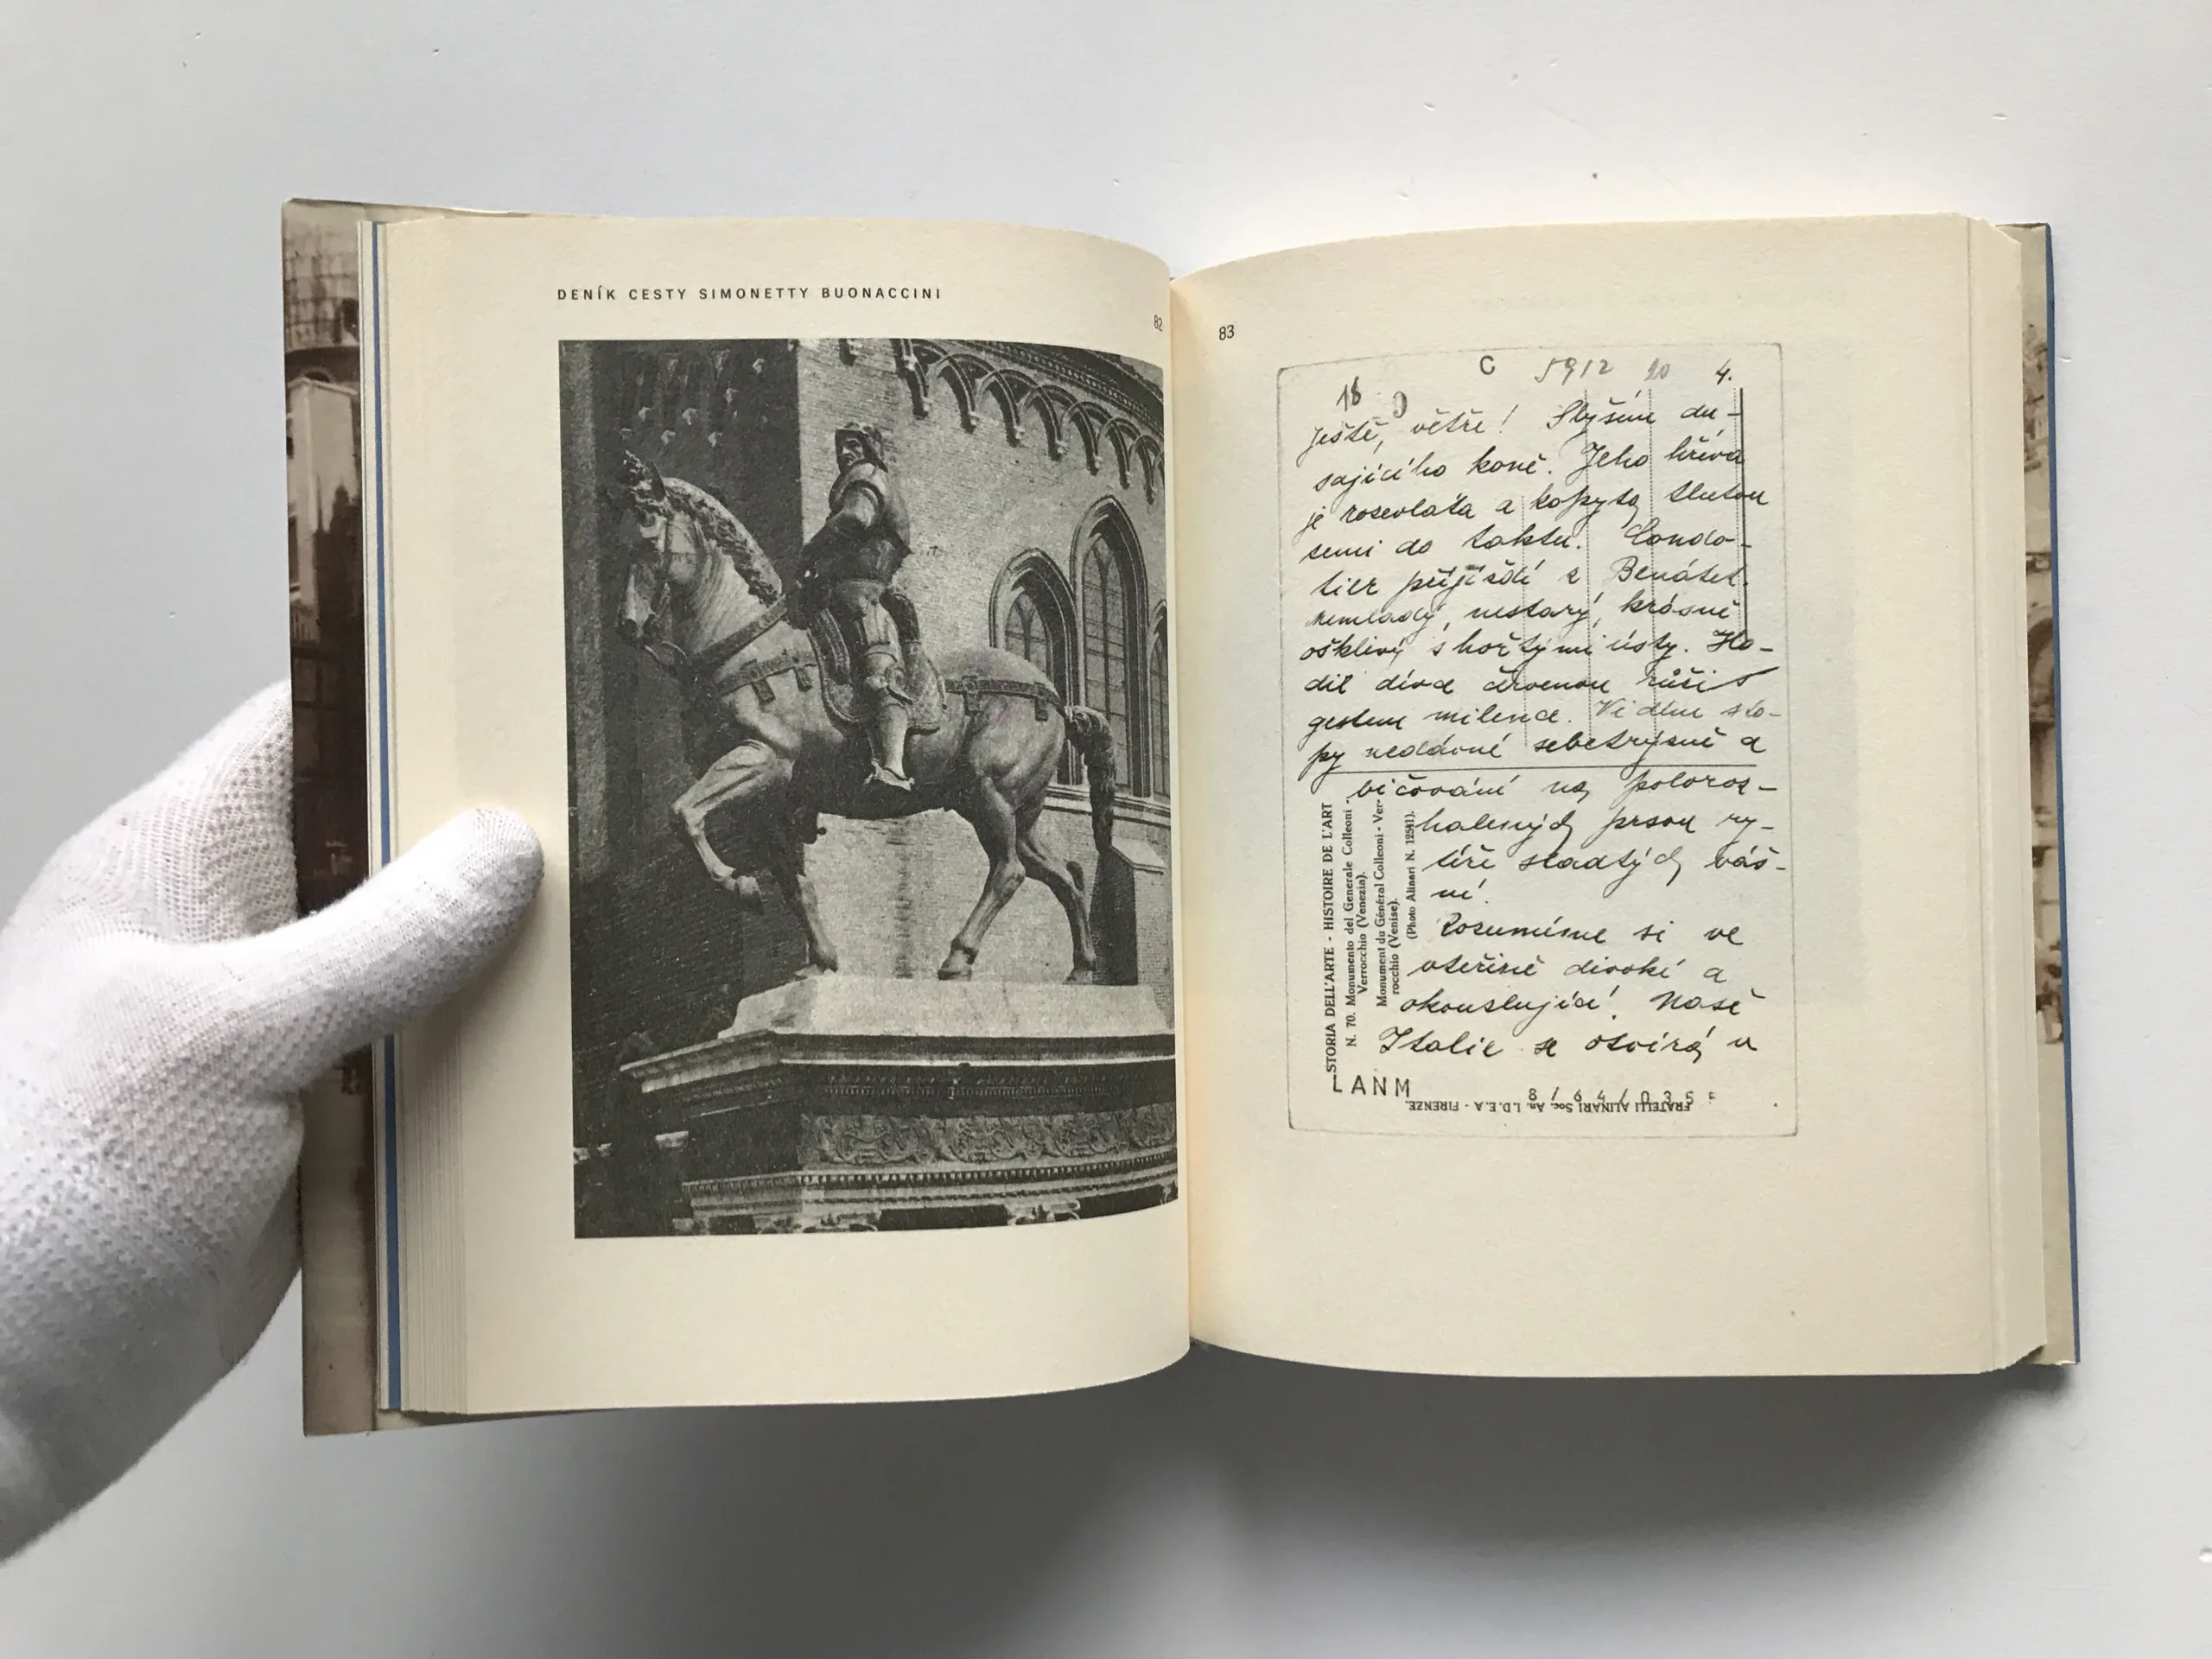 DENÍK CESTY SIMONETTY BUONACCINI
82
83
C 5912 20 4.
18
Ještě, větře! Slyším du-
sajícího koně. Jeho hříva
je rozevlátá a kopyta tlukou
zemi do taktu. Condo-
tier přijíždí z Benátek
nemladý, nestarý, krásně
ošklivý s hořkými ústy. Ho-
dil dívce červenou růži s
gestem milence. Vidím sto-
py nedávné sebetrýzně a
bičování na poloroz-
halených prsou ry-
tíře sladkých váš-
ní.
Rozumíme si ve
vteřině divoké a
okouzlující. Naše
Italie se otvírá v
STORIA DELL'ARTE - HISTOIRE DE L'ART
N. 70. Monumento del Generale Colleoni -
Verrocchio (Venezia).
Monument du Général Colleoni - Ver-
rocchio (Venise).
(Photo Alinari N. 12541).
LANM 8/64/035
FRATELLI ALINARI Soc. An. I.D.E.A - FIRENZE.